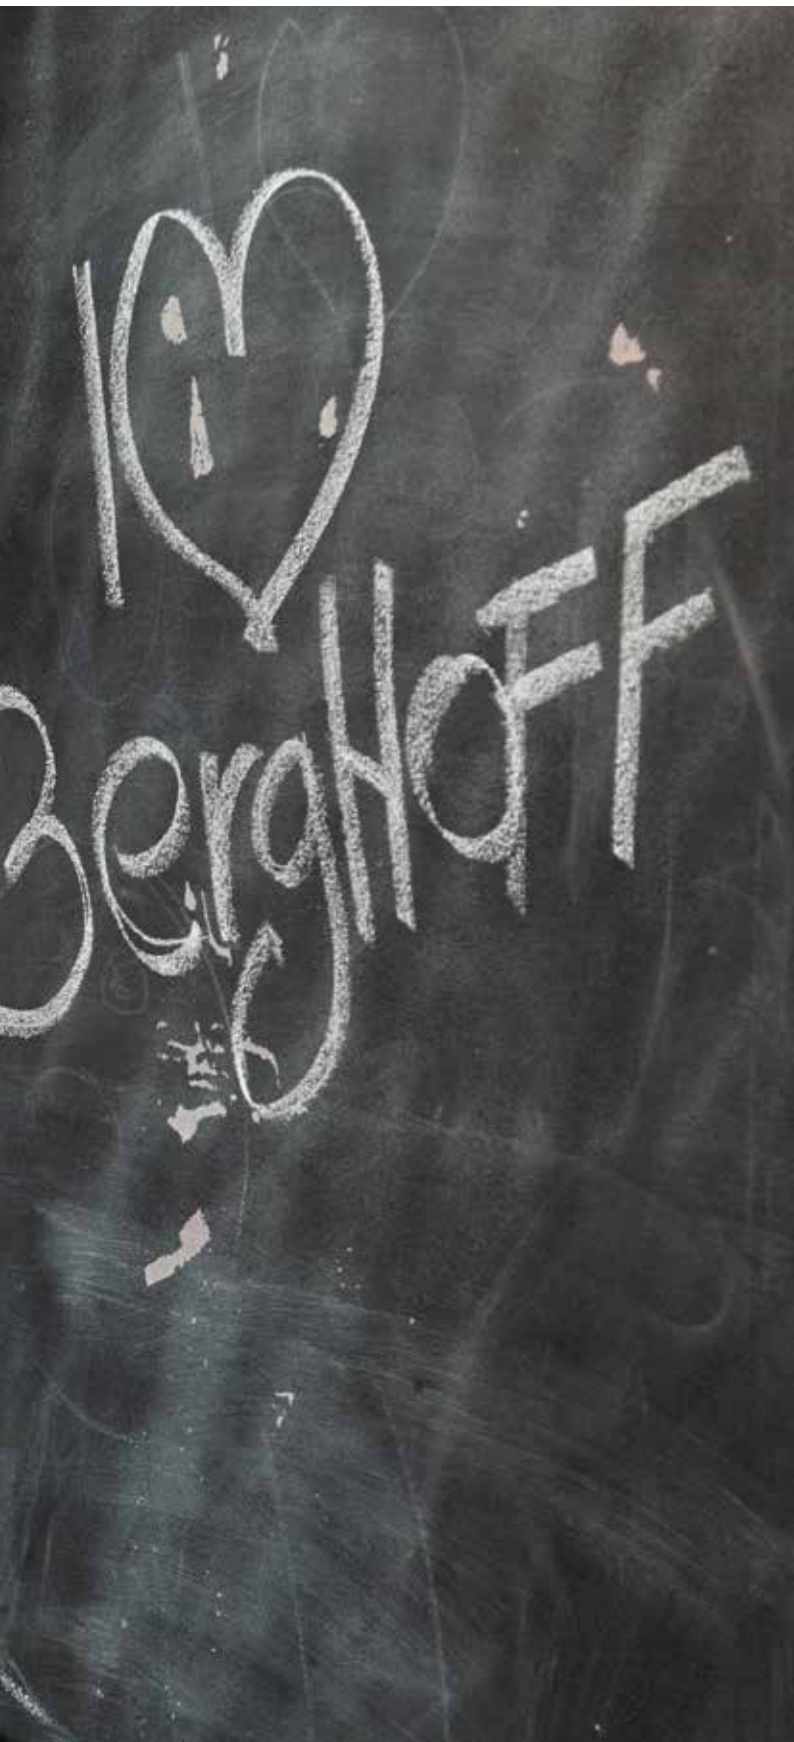 I ♥
BergHoFF